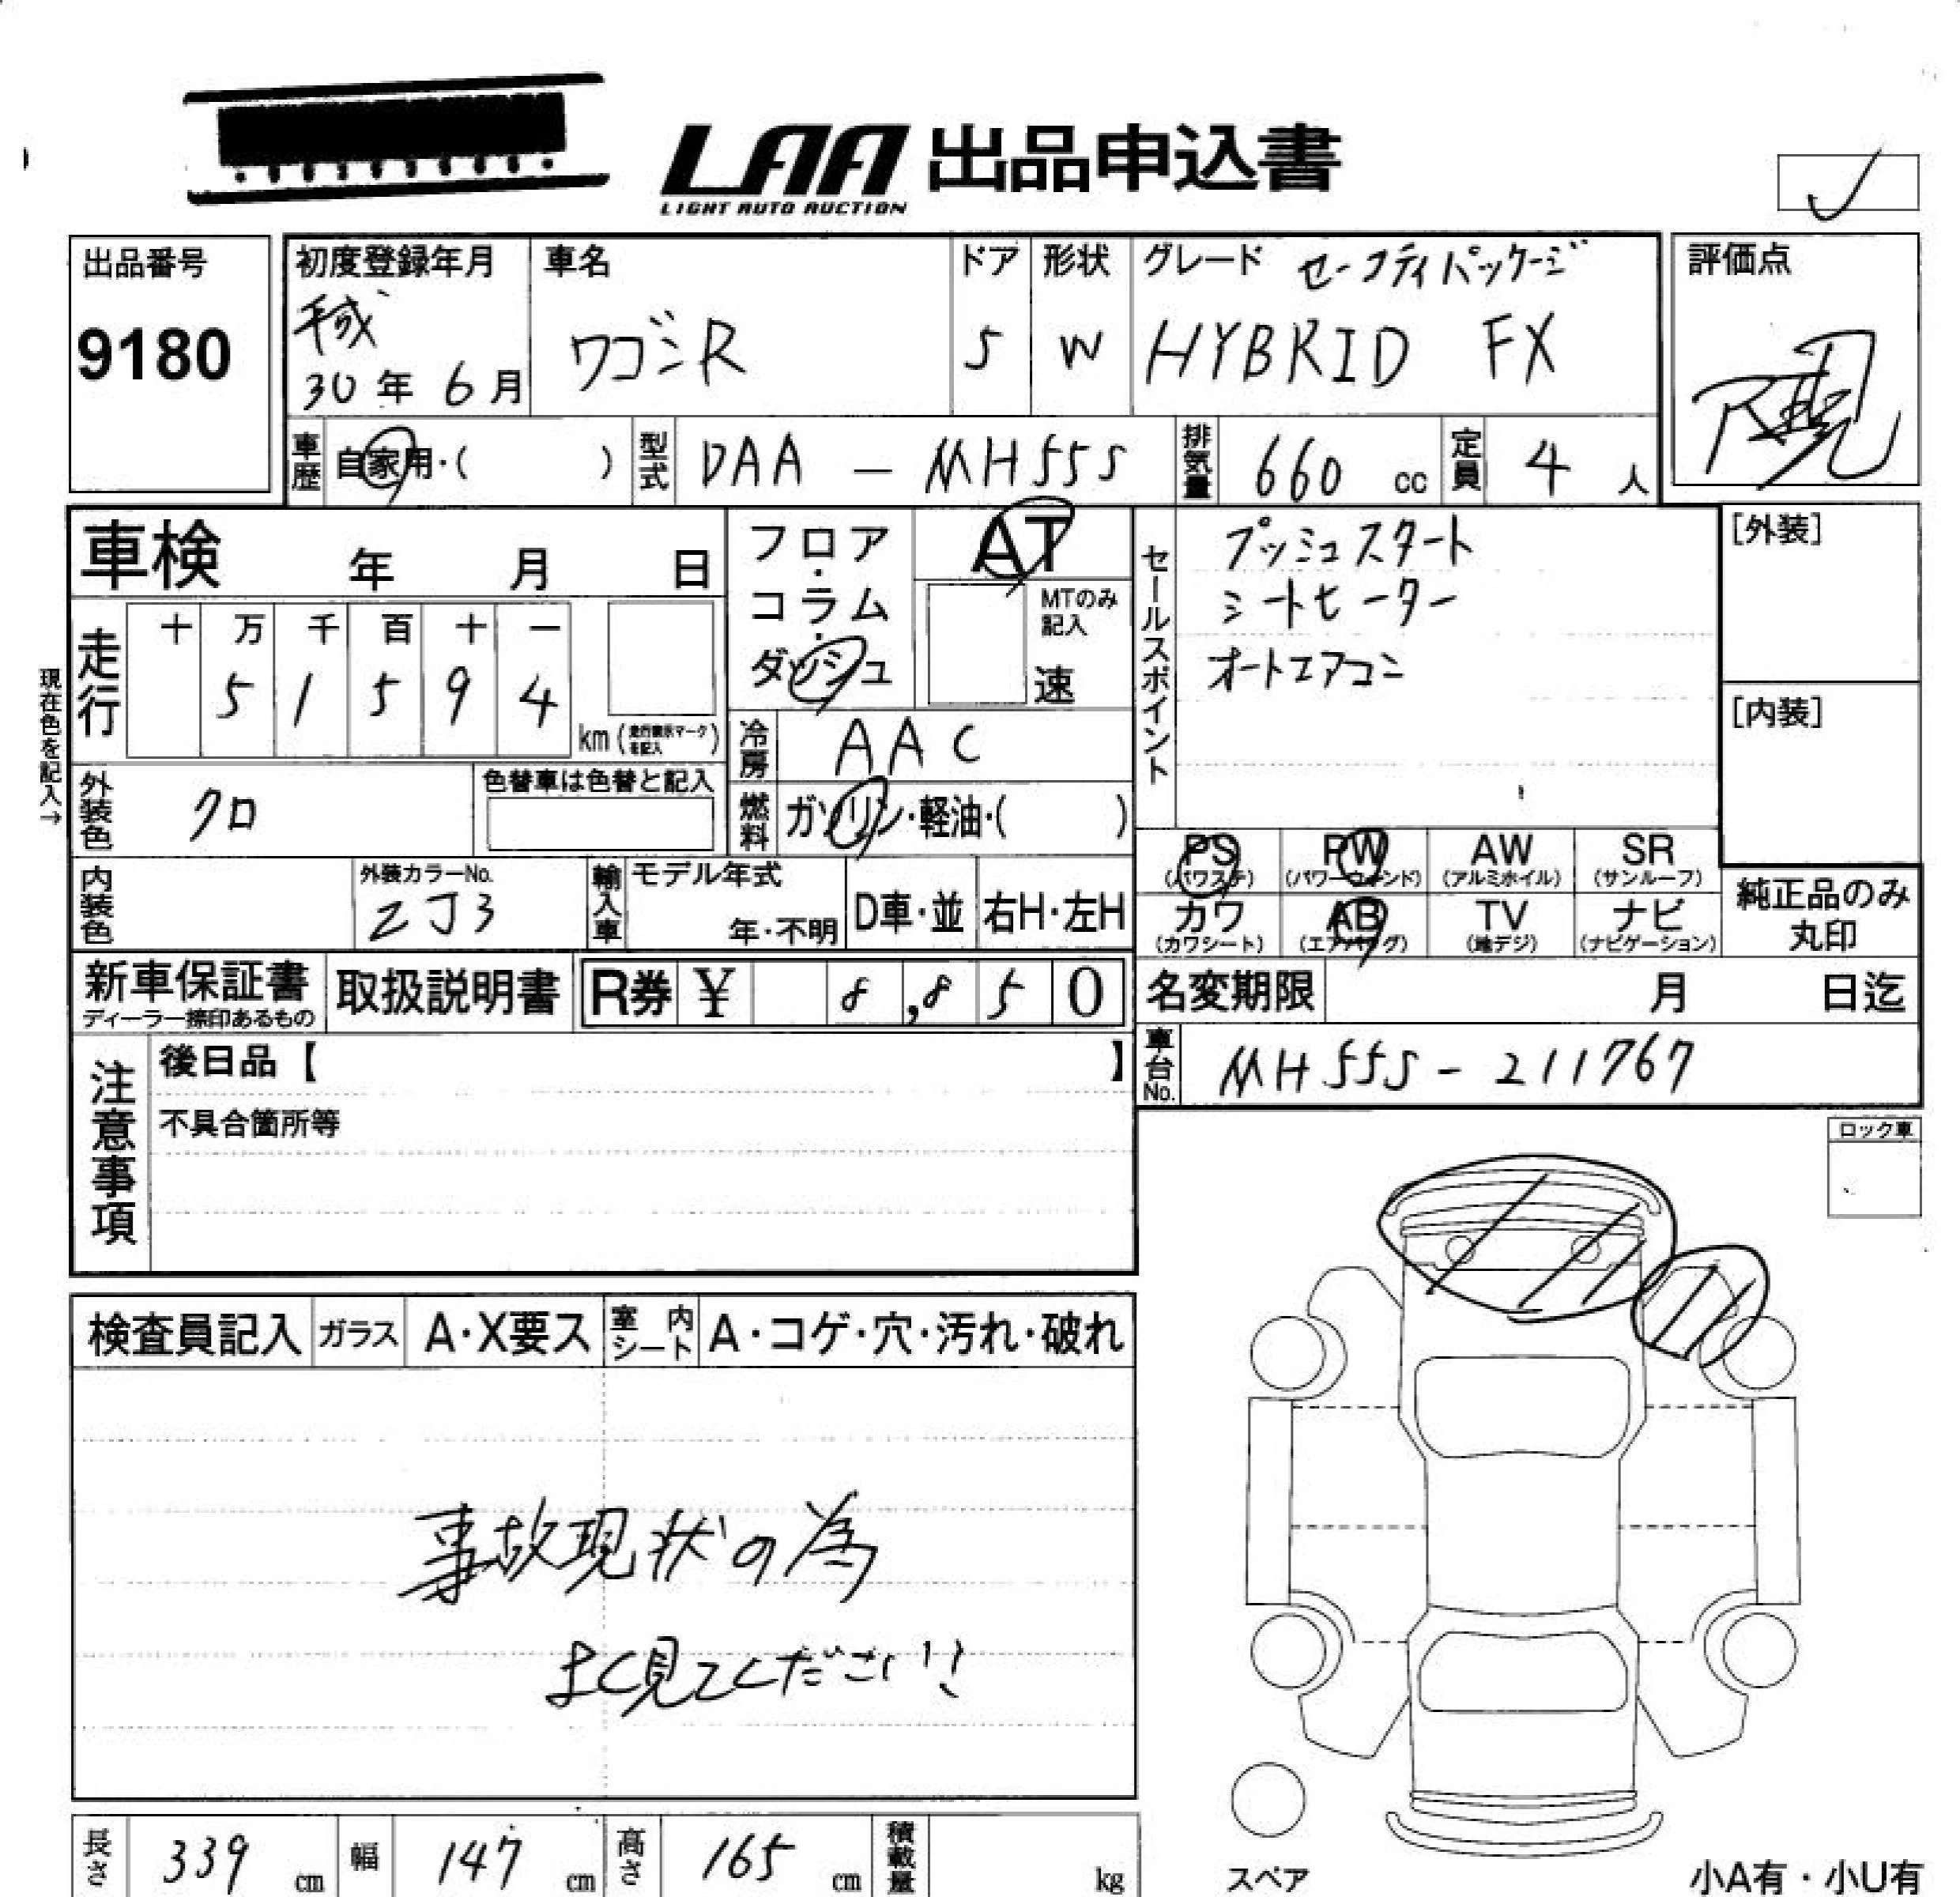 LAA 出品申込書
LIGHT AUTO AUCTION
出品番号
9180
初度登録年月
平成
30年 6月
車名
ワゴンR
ドア
5
形状
W
グレード セーフティパッケージ
HYBRID FX
評価点
車歴
自家用・( )
型式
DAA - MH55S
排気量
660 cc
定員
4 人
車検 年 月 日
フロア
・
コラム
・
ダッシュ
AT
MTのみ
記入
速
セールスポイント
プッシュスタート
シートヒーター
オートエアコン
[外装]
[内装]
現在色を記入→
走行
十 万 千 百 十 一
5 1 5 9 4
km (走行表示マークを記入)
冷房
AAC
外装色
クロ
色替車は色替と記入
燃料
ガソリン・軽油・( )
PS
(パワステ)
PW
(パワーウィンド)
AW
(アルミホイル)
SR
(サンルーフ)
カワ
(カワシート)
AB
(エアバッグ)
TV
(地デジ)
ナビ
(ナビゲーション)
純正品のみ
丸印
内装色
外装カラーNo.
ZJ3
輸入車
モデル年式
年・不明
D車・並
右H・左H
新車保証書
ディーラー捺印あるもの
取扱説明書
R券 ¥ 8,850
名変期限 月 日迄
車台No.
MH55S-211767
注意事項
後日品【 】
不具合箇所等
ロック車
検査員記入
ガラス
A・X要ス
室内シート
A・コゲ・穴・汚れ・破れ
事故現状の為
よく見てください!!
長さ
339 cm
幅
147 cm
高さ
165 cm
積載量
kg
スペア
小A有・小U有